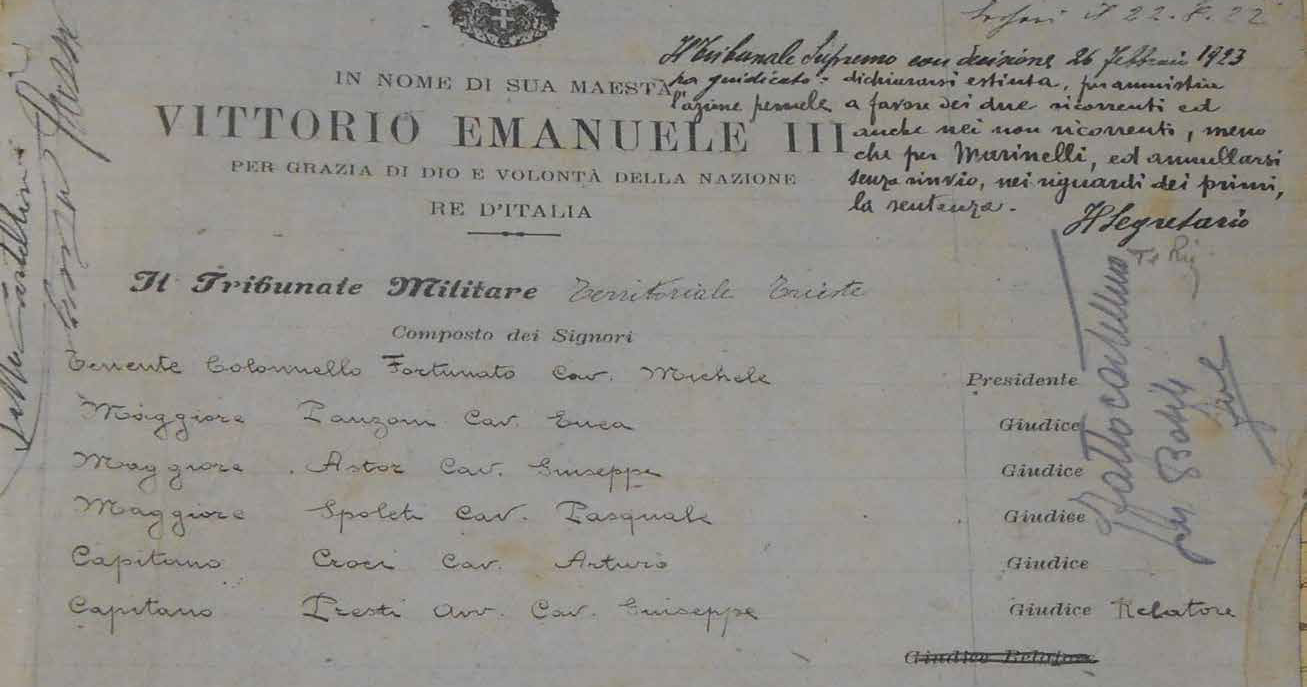 22. 8. 22
Il Tribunale Supremo con decisione 26 Febbraio 1923
ha giudicato: dichiararsi estinta, per amnistia
l'azione penale a favore dei due ricorrenti ed
anche nei non ricorrenti, meno
che per Marinelli, ed annullarsi
senza rinvio, nei riguardi dei primi,
la sentenza.
Il Segretario
IN NOME DI SUA MAESTÀ
VITTORIO EMANUELE III
PER GRAZIA DI DIO E VOLONTÀ DELLA NAZIONE
RE D'ITALIA
Il Tribunale Militare Territoriale Trieste
Composto dei Signori
Tenente Colonnello Fortunato Cav. Michele Presidente
Maggiore Panzoni Cav. Enea Giudice
Maggiore Astor Cav. Giuseppe Giudice
Maggiore Spoleti Cav. Pasquale Giudice
Capitano Croci Cav. Arturo Giudice
Capitano Presti Avv. Cav. Giuseppe Giudice Relatore
Giudice Relatore
Fatto cartellino